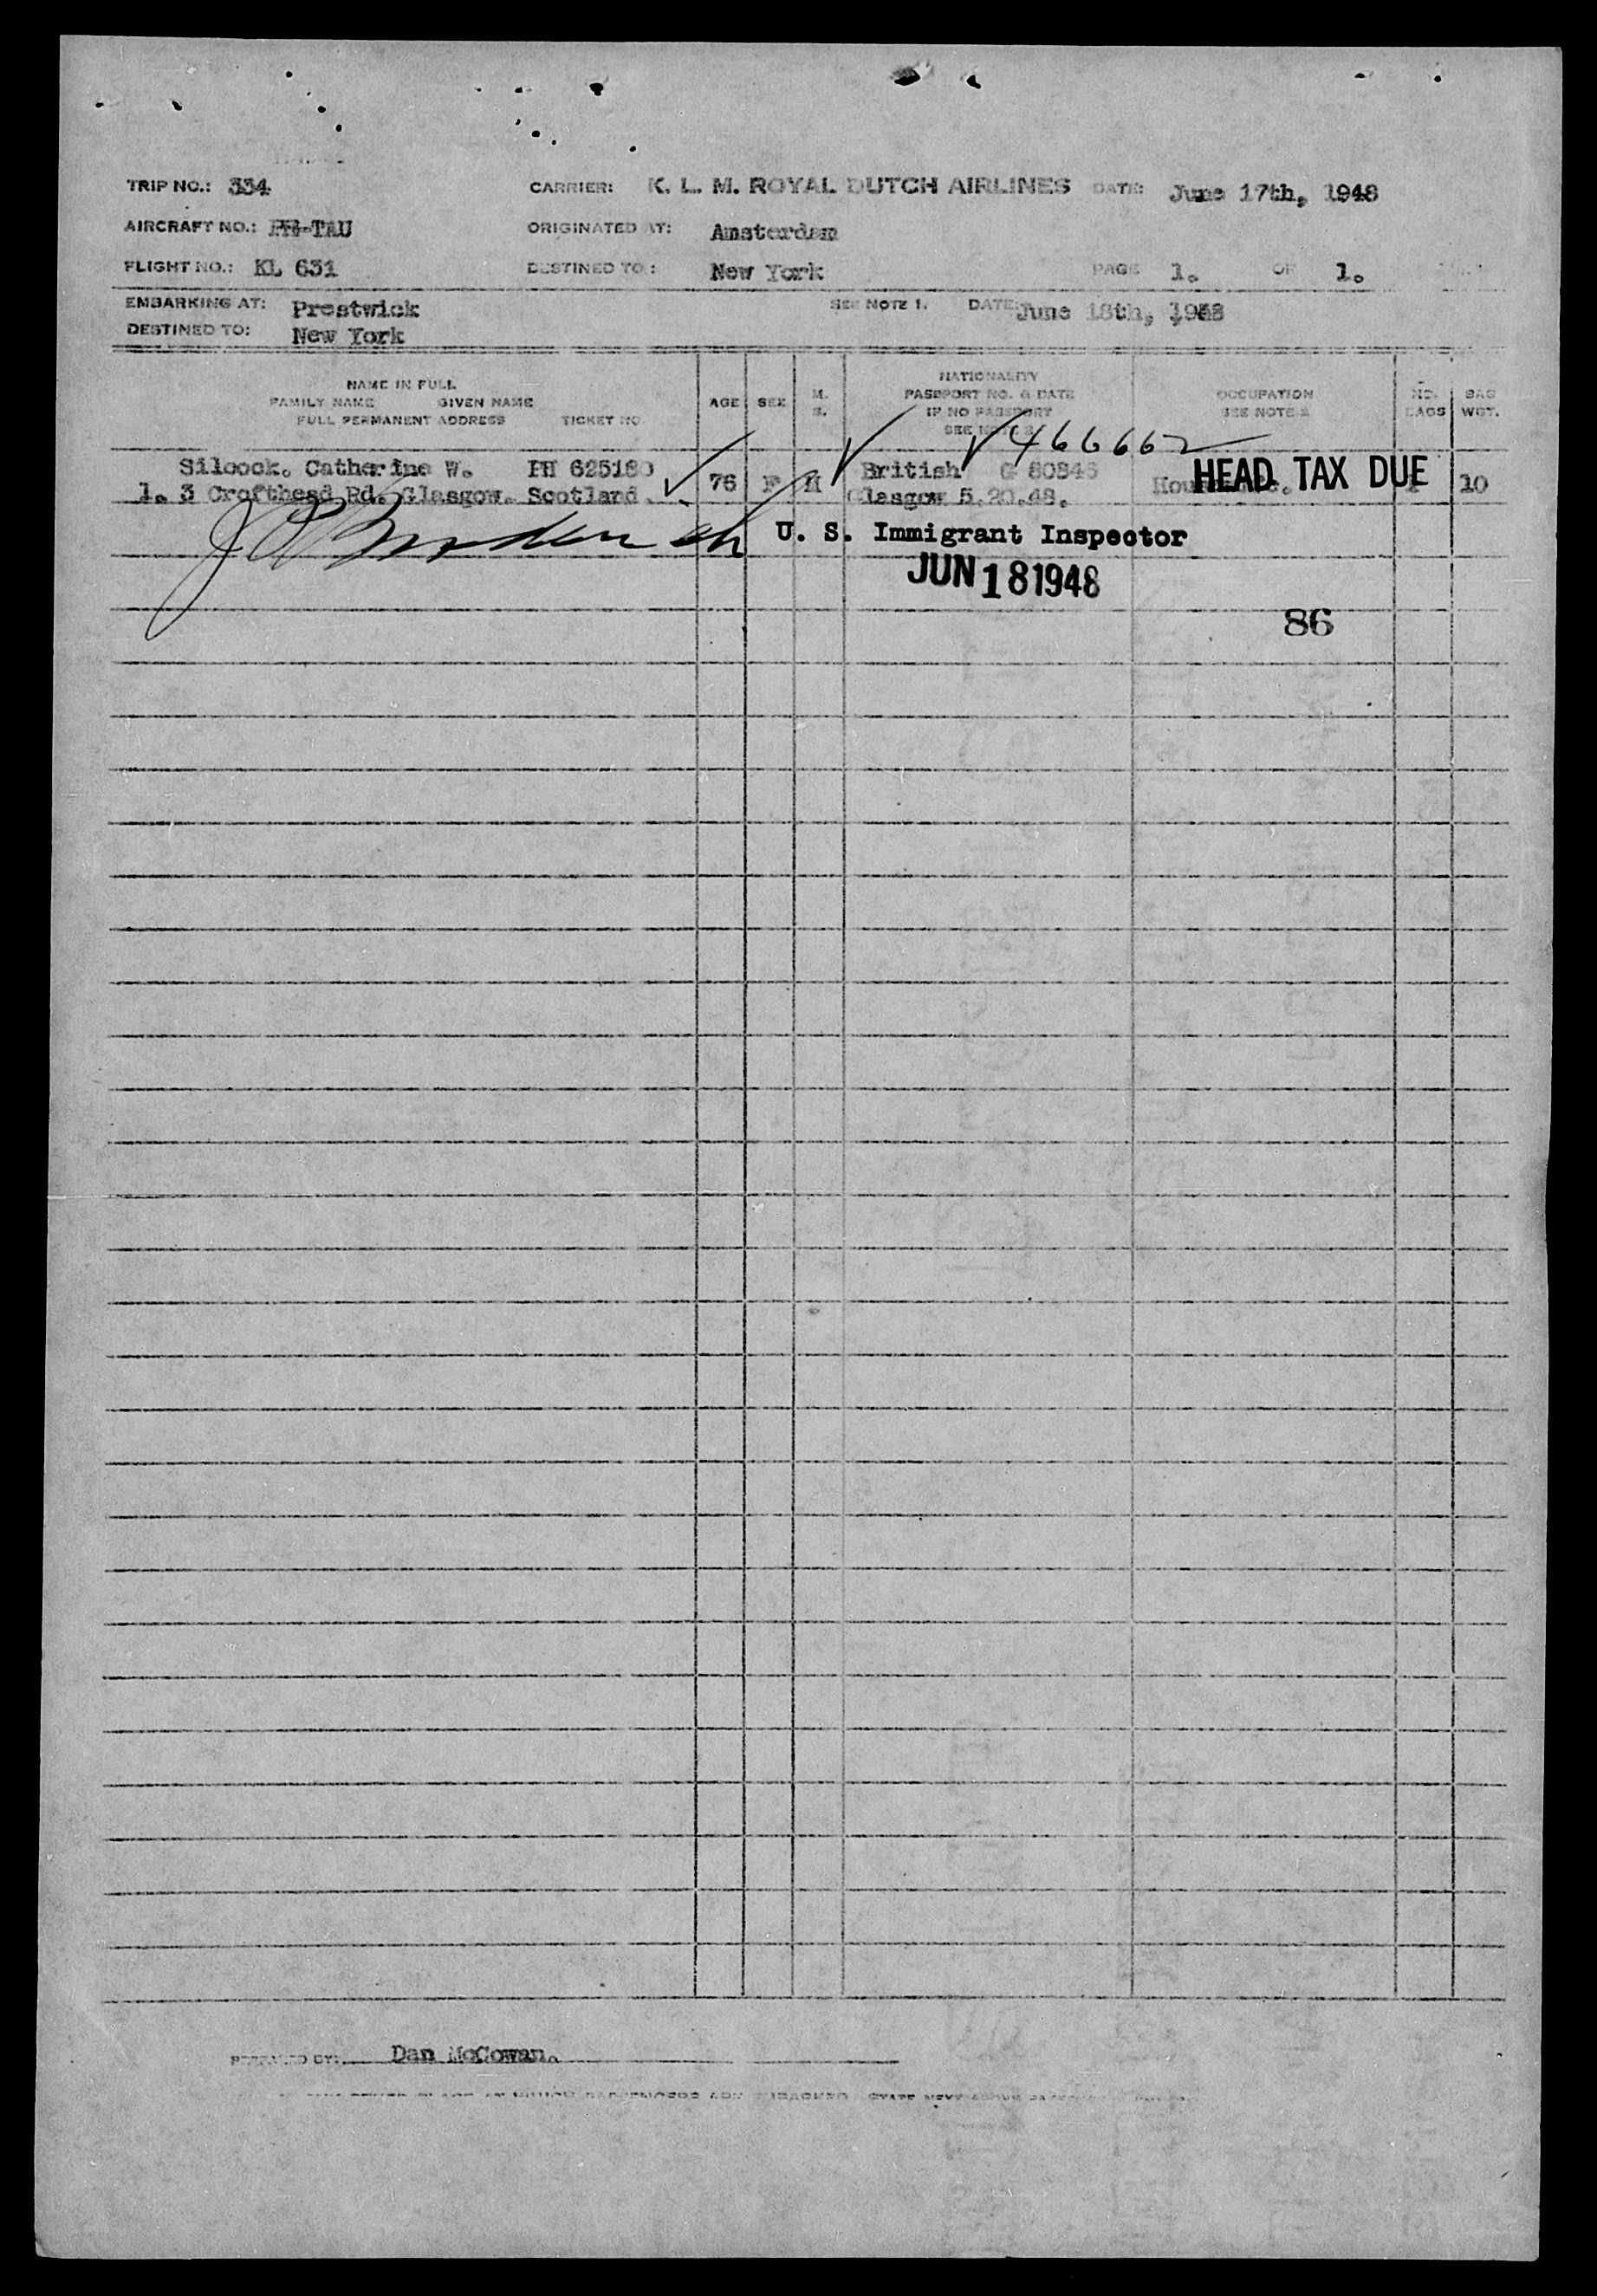 TRIP NO.: 334 CARRIER: K. L. M. ROYAL DUTCH AIRLINES DATE: June 17th, 1948
AIRCRAFT NO.: PH-TAU ORIGINATED AT: Amsterdam
FLIGHT NO.: KL 631 DESTINED TO: New York PAGE 1. OF 1.
EMBARKING AT: Prestwick SEE NOTE 1. DATE: June 18th, 1948
DESTINED TO: New York
NAME IN FULL
FAMILY NAME GIVEN NAME
FULL PERMANENT ADDRESS TICKET NO.
AGE SEX M. S.
NATIONALITY
PASSPORT NO. & DATE
IF NO PASSPORT
SEE NOTE
OCCUPATION
SEE NOTE
NO. BAGS
BAG WGT.
466662
Silcock. Catherine W. PH 625180 76 F British G 80846 HEAD TAX DUE 10
1. 3 Crofthead Rd. Glasgow. Scotland. Glasgow 5.20.48.
U. S. Immigrant Inspector
JUN 18 1948
86
PREPARED BY: Dan McCowan.